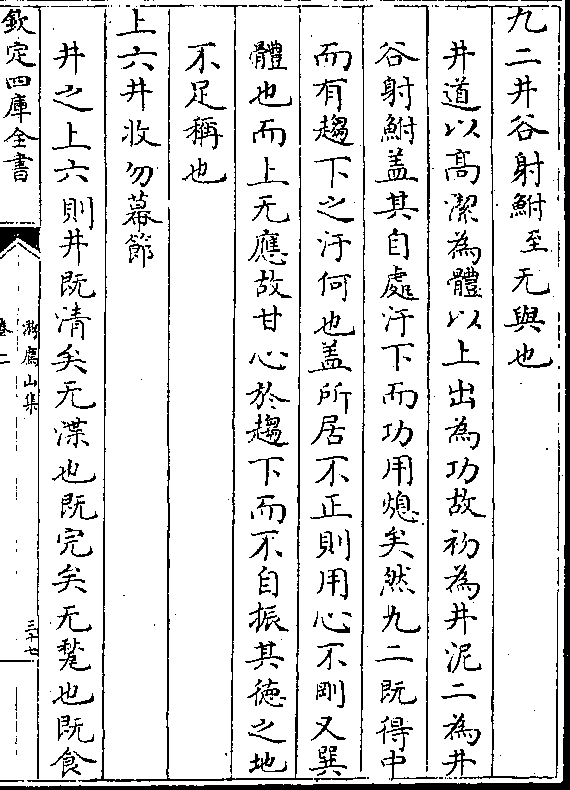 九二井谷射鮒至无與也
井道以髙潔為體以上出為功故初為井泥二為井
谷射鮒盖其自處汙下而功用熄矣然九二既得中
而有趨下之汙何也盖所居不正則用心不剛又巽
體也而上无應故甘心於趨下而不自振其德之地
不足稱也
上六井收勿幕節
井之上六則井既清矣无渫也既完矣无甃也既食
欽定四庫全書
游廌山集
卷二
三十七